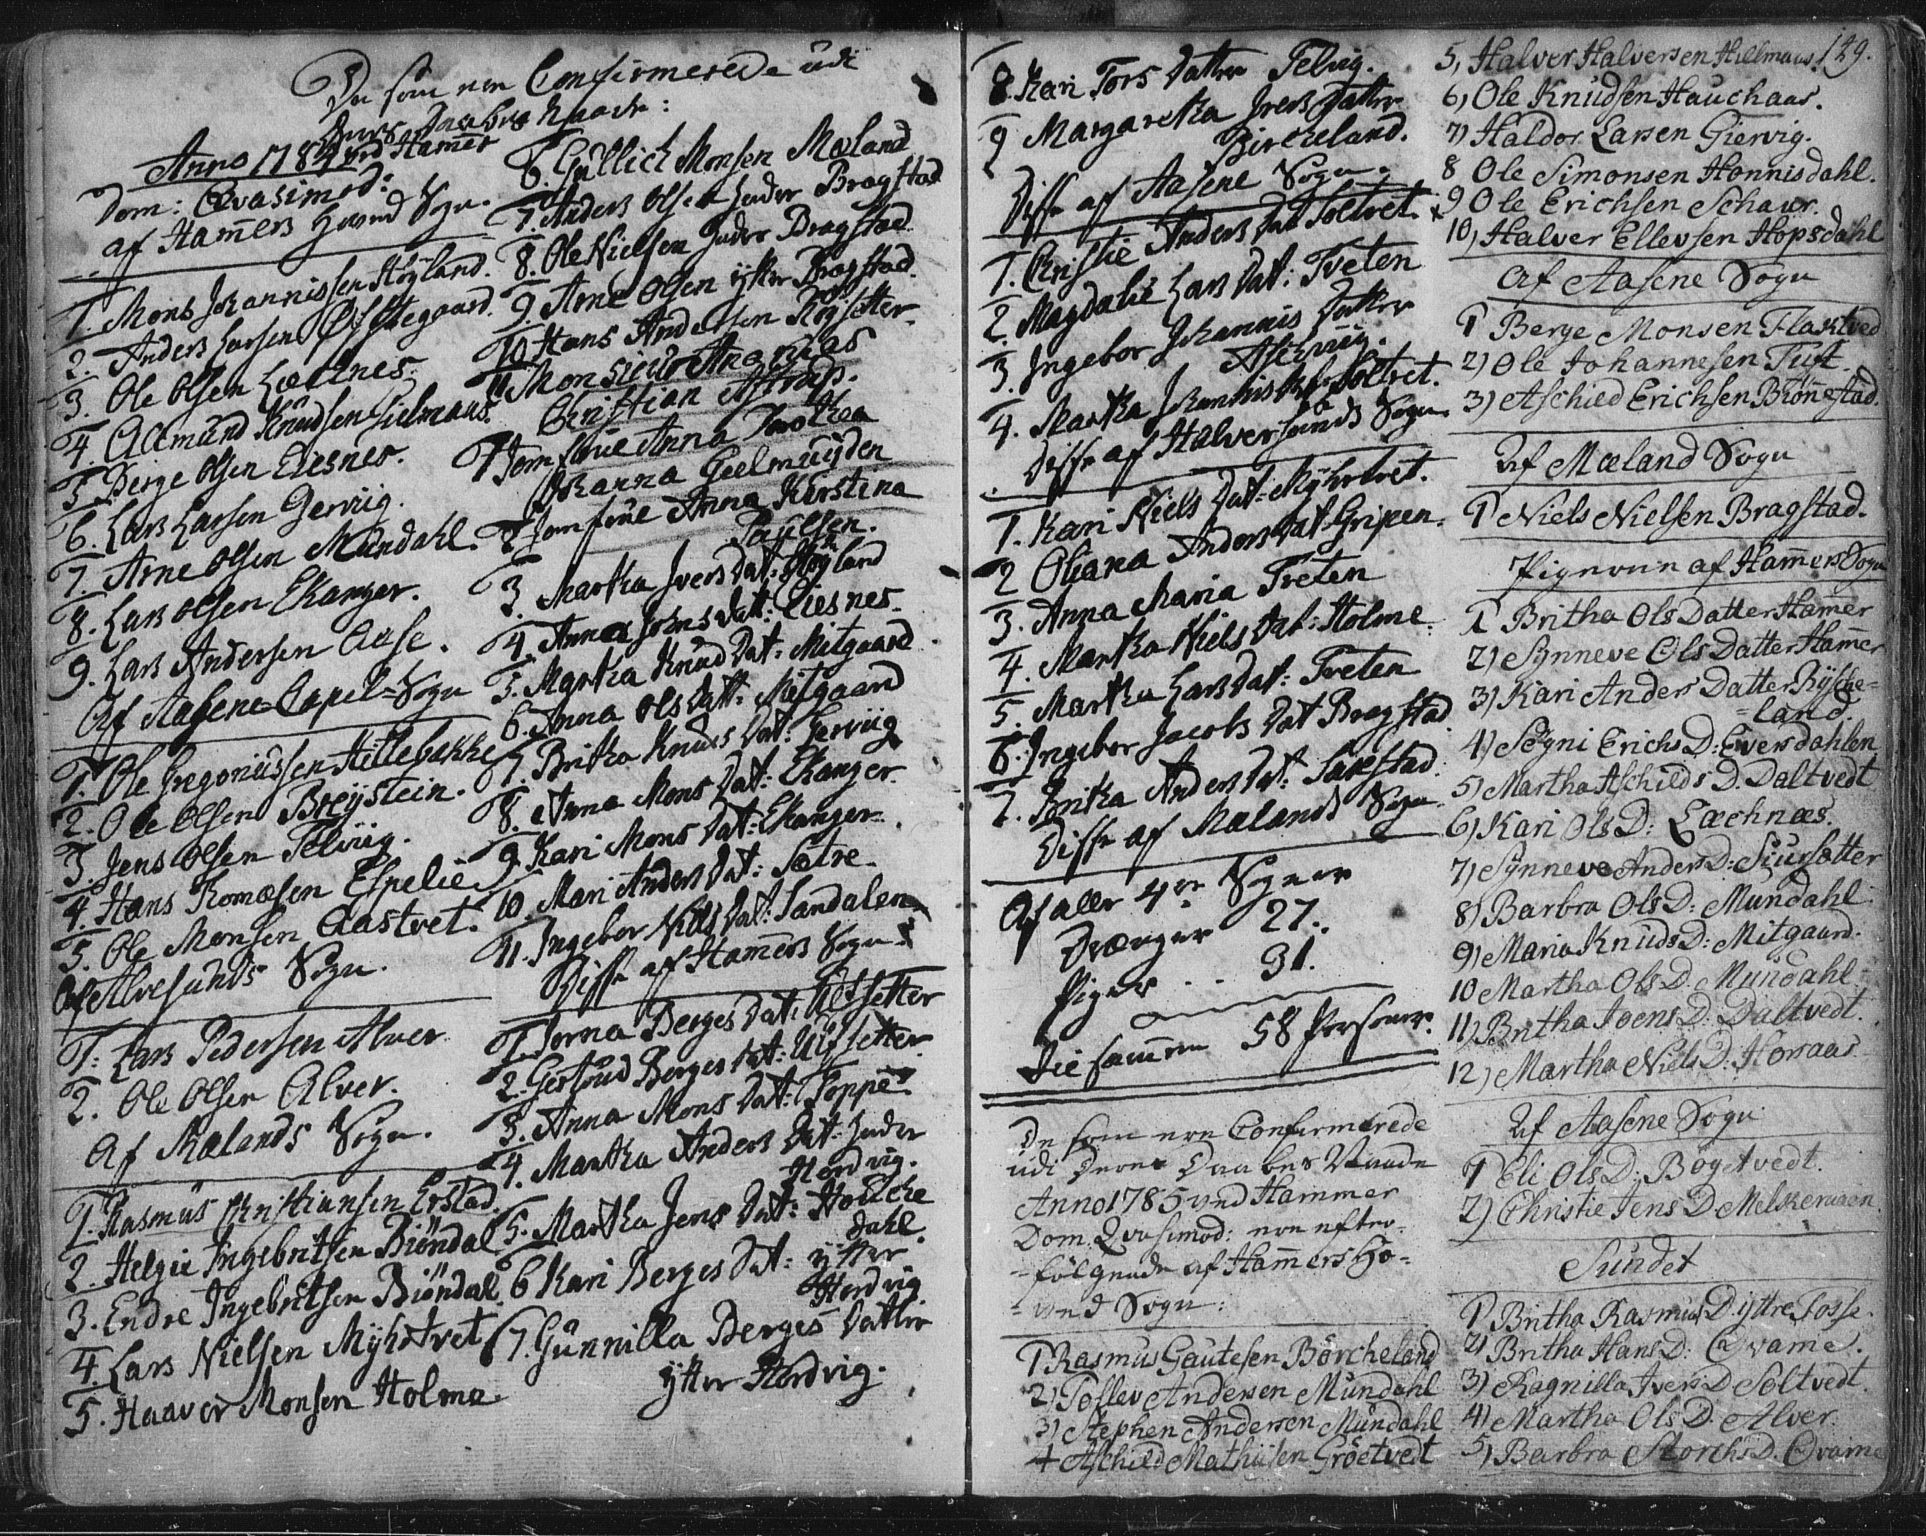 De som ere Confirmerede udi
deres Daabes Naade:
Anno 1784 ved Hamer
Dom: Qvasimod:
af Hamers Hovend Sogn.
1. Mons Johannissen Høyland.
2. Anders Larsen Øfstegaard.
3. Ole Olsen Leetnes.
4. Aamund Knudsen Hielmaas.
5. Berge Olsen Eiesnes.
6. Lars Larsen Gerviig.
7. Arne Olsen Mundahl.
8. Lars Olsen Ekanger.
9. Lars Andersen Aase.
Af Aasene Capel-Sogn
1. Ole Gregoriussen Hillebakke
2. Ole Olsen Breystein.
3. Jens Olsen Telviig.
4. Hans Tomæsen Espelie
5. Ole Monsen Aastvet.
Af Alvesunds Sogn.
1. Lars Pedersen Alver
2. Ole Olsen Alver.
Af Mælands Sogn.
1. Rasmus Christiansen Erstad.
2. Helgie Ingebritsen Biöndal
3. Endre Ingebritsen Biöndal
4. Lars Nielsen Myhrtvet
5. Haaver Monsen Holme
6. Gullich Monsen Mæland
7. Anders Olsen Inder Bragstad
8. Ole Nielsen Inder Bragstad
9. Arne Olsen ytter Bragstad.
10 Hans Andersen Röysetter.
11 Monsieur Ananias
Christian Astrup.
1 Jomfrue Anna Dorthea
Johanna Geelmuyden
2 Jomfrue Anna Kirstina
Paulsen.
3. Martha Ivers Dat: Höyland
4. Anna Johns Dat: Eiesnes.
5. Martha Knud Dat: Mitgaard
6. Anna Ols Dat: Mitgaard
7. Britha Knuds Dat: Gerviig
8. Anna Mons Dat: Ekanger.
9 Kari Mons Dat: Ekanger.
10 Mari Anders Dat: Sætre
11. Ingebor Niels Dat: Sandalen
Disse af Hamers Sogn.
1. Jorna Berges Dat: Ulfsetter
2. Gertrud Berges Dat: Ulfsetter
3. Anna Mons Dat: Toppe
4. Martha Anders Dat: Inder
Hordvig.
5. Martha Jens Dat: Houke
dahl.
6 Kari Berges Dat: ytter
Hordvig
7. Gunnilla Berges Datter
ytter Hordvig.
8. Kari Tors Datter Telvig.
9 Margaretha Ivers Datter
Birkeland.
Disse af Aasene Sogn.
1. Christie Anders Dat Soltvet.
2. Magdalie Lars Dat: Tveten
3. Ingebor Johannis Datter
4. Martha Johannis Dat: Soltvet.
Disse af Halversunds Sogn
1. Kari Niels Dat: Myhrtvet.
2 Oliana Anders Dat Gripen.
3. Anna Maria Tveten
4. Martha Niels Dat: Holme.
5. Martha Lars Dat: Tveten
6. Ingebor Jacobs Dat Bragstad
7. Britha Anders Dat:
Disse af Mælands Sogn
Af aller 4re Sogner
Drænger 27.
Piger . . 31.
Tilsammen 58 Personer.
De som ere Confirmerede
udi Deres Daabes Naade
Anno 1785 ved Hammer
Dom. Qvasimod: ere efter-
-følgende af Hammers Ho-
-vend Sogn:
1 Rasmus Gautesen Börcheland
2) Tollev Andersen Mundahl
3) Stephen Andersen Mundahl
4 Aschild Mathiisen Gröetvedt
149.
5, Halver Halversen Hillmaas
6, Ole Knudsen Hauchaas.
7) Haldor Larsen Giervig.
8 Ole Simonsen Honnisdahl.
9 Ole Erichsen Schaur.
10, Halver Ellevsen Hopsdahl
Af Aasene Sogn
1 Berge Monsen Flaktved
2) Ole Johannesen Tuft.
3) Aschild Erichsen Brönestad.
Af Mæland Sogn
1 Niels Nielsen Bragstad.
Pigerne af Hamers Sogn
1 Britha Ols Datter Hamer
2) Synneve Ols Datter Hamer
3) Kari Anders Datter Rysche=
=land.
4) Sögni Erichs D: Eversdahlen
5) Martha Aschilds D. Daltvedt
6) Kari Ols D: Læchnæs.
7) Synneve Anders D: Siursætter
8) Barbra Ols D: Mundahl.
9) Maria Knuds D: Mitgaard.
10 Martha Ols D. Mundahl
11) Britha Joens D: Daltvedt.
12) Martha Niels D. Horsaas
Af Aasene Sogn
1 Eli Ols D: Bögetvedt.
2) Christie Jens D Melskeraaen
Sundet
1 Britha Rasmus D. yttre Fosse.
2) Britha Hans D: Qvame.
3) Ragnilla Ivers D Soltvedt.
4) Martha Ols D. Alver.
5) Barbra Storchs D. Qvame